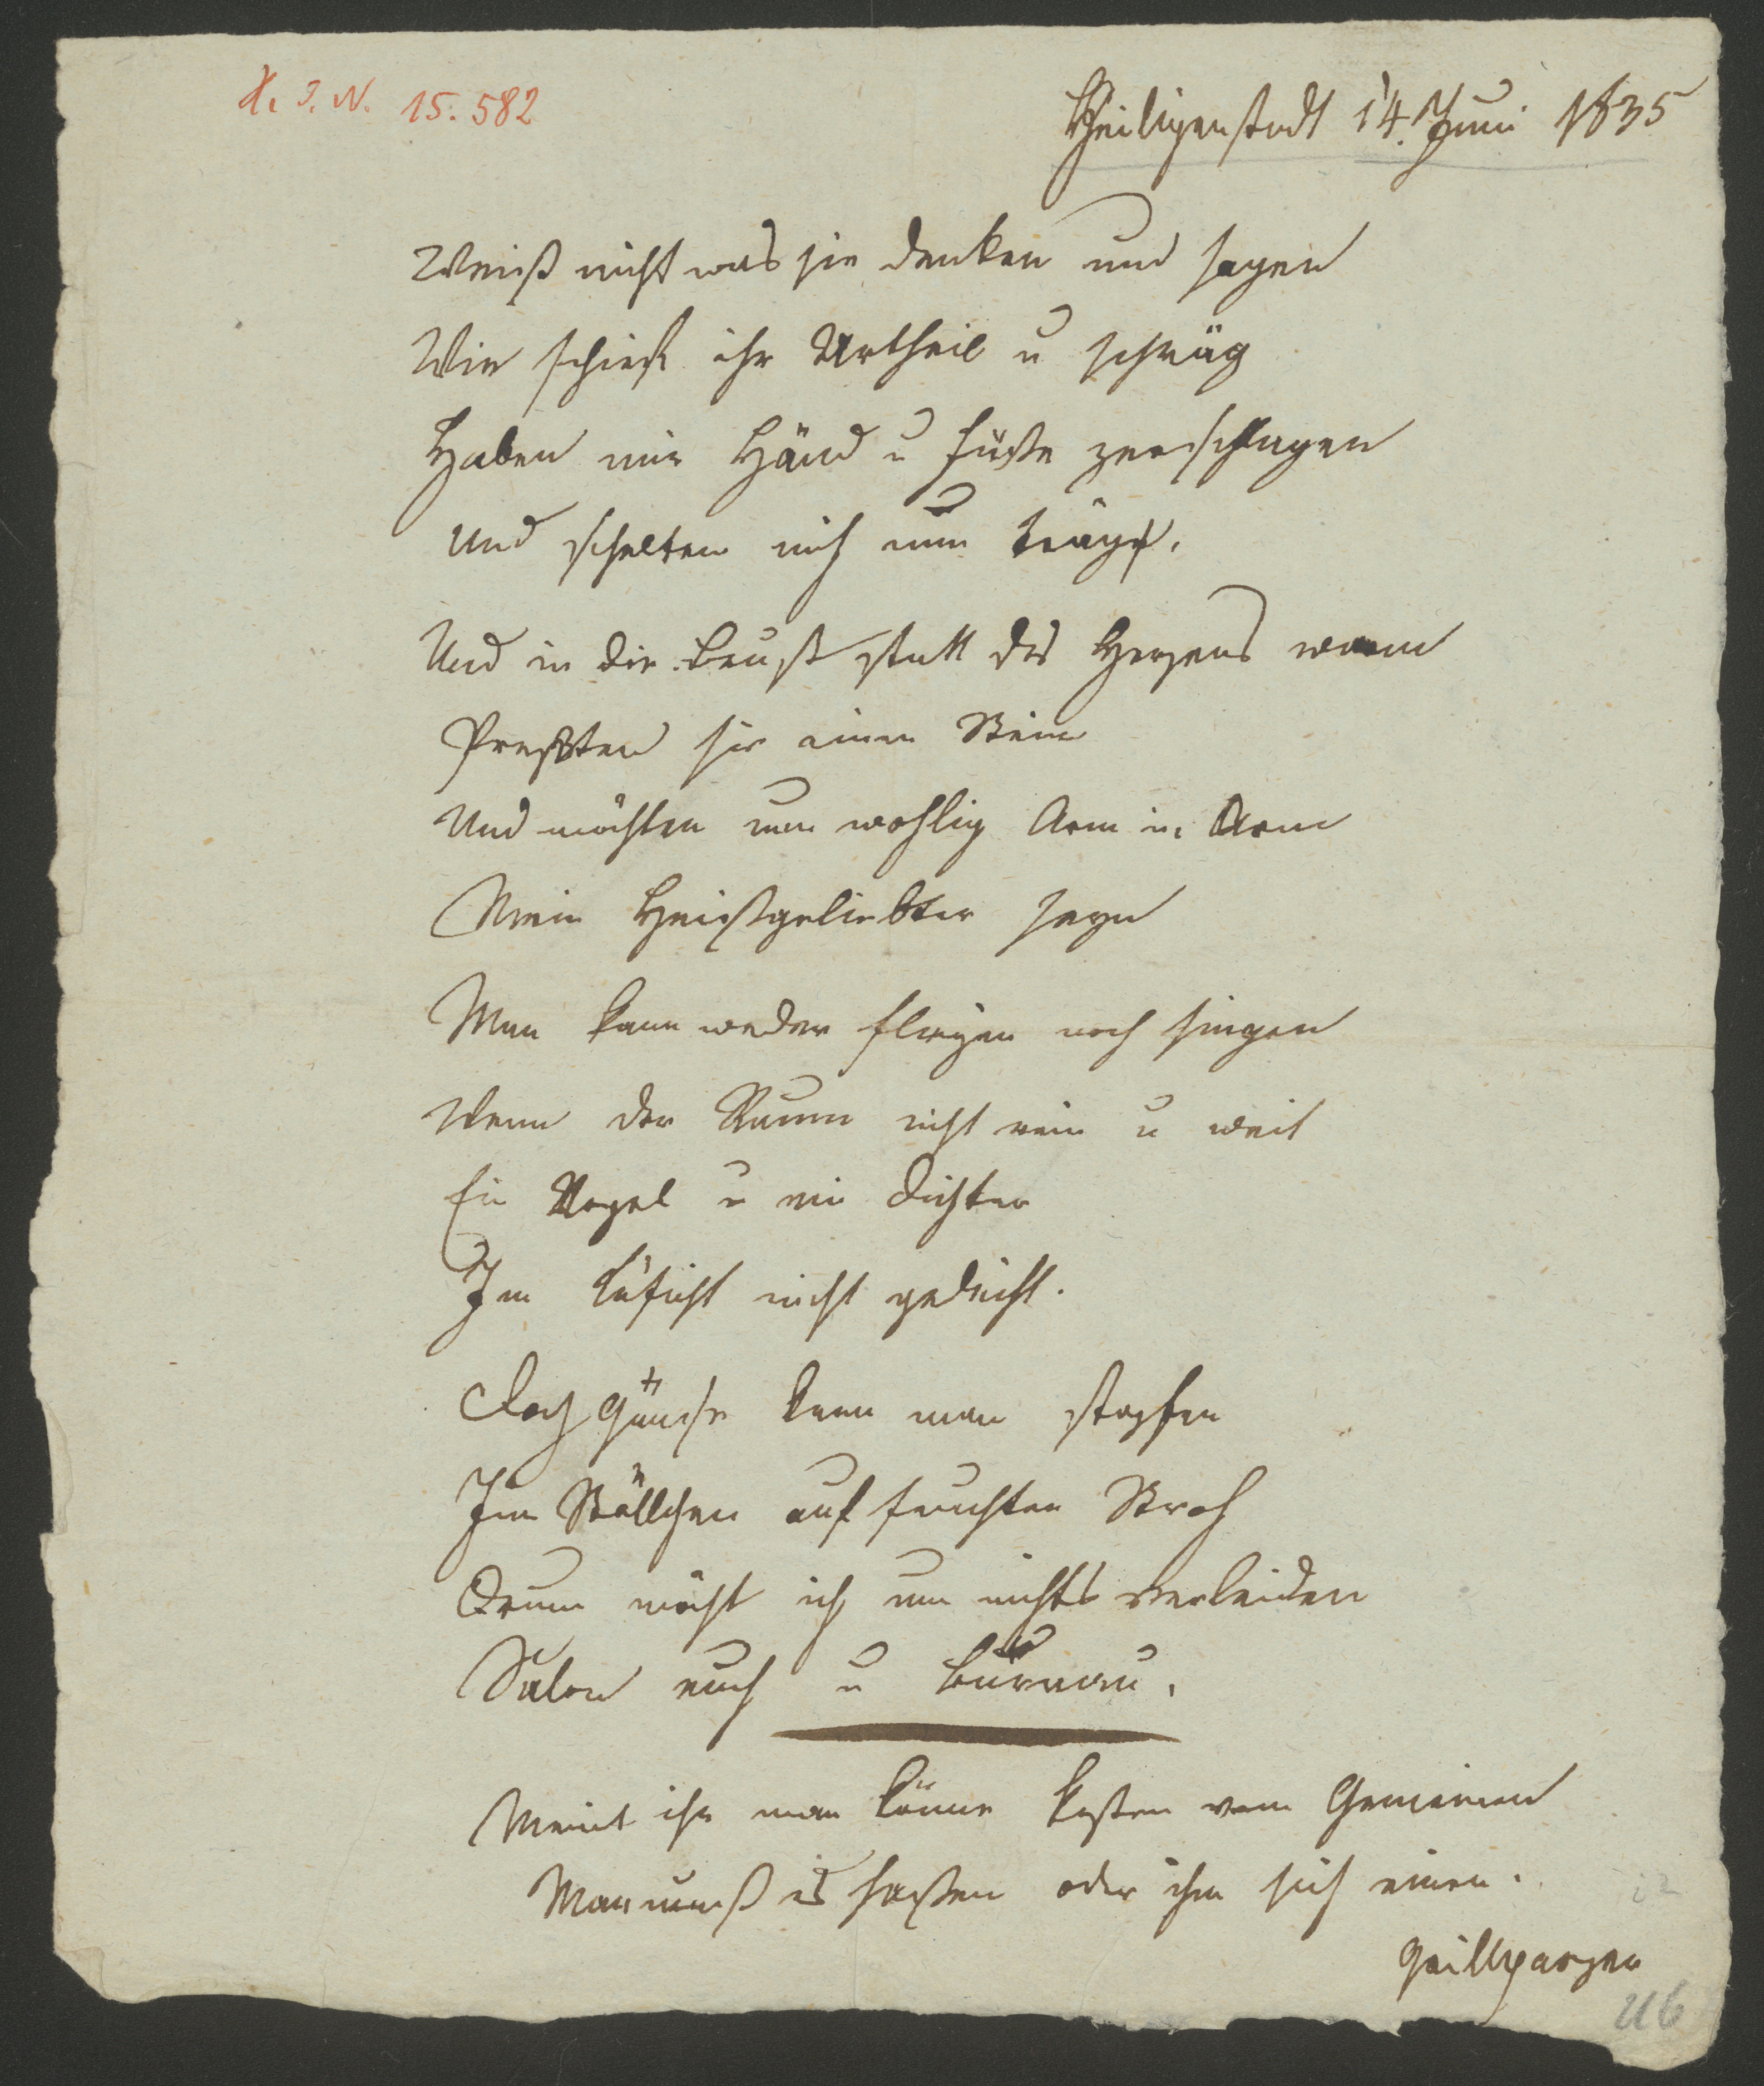 H. I. N. 15.582
Heiligenstadt 14. Juni 1835
Weiß nicht was sie denken und sagen
Wie schief ihr Urtheil u schräg
Haben mir Händ u Füße zerschlagen
Und schelten mich nun träge.
Und in die Brust statt des Herzens warm
Preßten sie einen Stein
Und möchten nun wohlig Arm in Arm
Mein Heißgeliebter seyn
Man kann weder fliegen noch singen
Wenn der Raum nicht rein u weit
Ein Vogel u ein Dichter
Im Käficht nicht gedeiht.
Doch Gänse kann man stopfen
Im Ställchen auf feuchten Stroh
Drum möcht ich um nichts verleiden
Salon euch u Bureau.
Meint ihr man könne kosten vom Gemeinen
Man muß es hassen oder ihm sich einen.
Grillparzer
U6